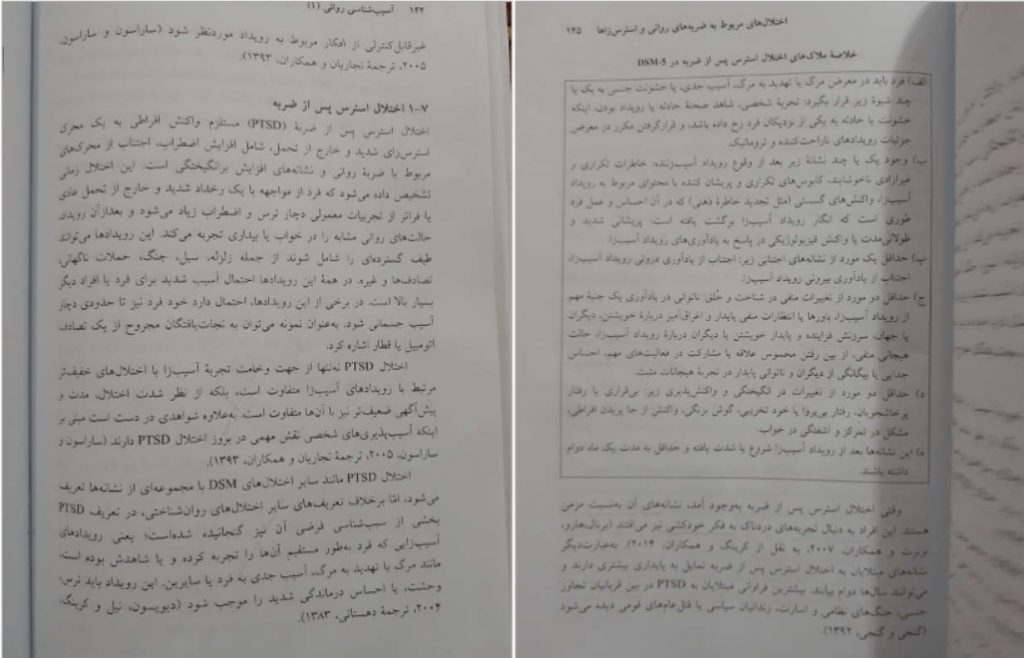 ۱۴۴ آسیب‌شناسی روانی (۱)
غیرقابل‌کنترلی از افکار مربوط به رویداد موردنظر شود (ساراسون و ساراسون،
۲۰۰۵، ترجمهٔ نجاریان و همکاران، ۱۳۹۳).
۷-۱ اختلال استرس پس از ضربه
اختلال استرس پس از ضربهٔ (PTSD) مستلزم واکنش افراطی به یک محرک
استرس‌زای شدید و خارج از تحمل، شامل افزایش اضطراب، اجتناب از محرک‌های
مربوط با ضربهٔ روانی و نشانه‌های افزایش برانگیختگی است. این اختلال زمانی
تشخیص داده می‌شود که فرد از مواجهه با یک رخداد شدید و خارج از تحمل عادی
یا فراتر از تجربیات معمولی دچار ترس و اضطراب زیاد می‌شود و بعدازآن رویدی
حالت‌های روانی مشابه را در خواب یا بیداری تجربه می‌کند. این رویدادها می‌تواند
طیف گسترده‌ای را شامل شوند از جمله زلزله، سیل، جنگ، حملات ناگهانی،
تصادف‌ها و غیره. در همهٔ این رویدادها احتمال آسیب شدید برای فرد یا افراد دیگر
بسیار بالا است. در برخی از این رویدادها، احتمال دارد خود فرد نیز تا حدودی دچار
آسیب جسمانی شود. به‌عنوان نمونه می‌توان به نجات‌یافتگان مجروح از یک تصادف
اتومبیل یا قطار اشاره کرد.
اختلال PTSD نه‌تنها از جهت وخامت تجربهٔ آسیب‌زا با اختلال‌های خفیف‌تر
مرتبط با رویدادهای آسیب‌زا متفاوت است، بلکه از نظر شدت اختلال، مدت و
پیش‌آگهی ضعیف‌تر نیز با آن‌ها متفاوت است. به‌علاوه شواهدی در دست است مبنی بر
اینکه آسیب‌پذیری‌های شخصی نقش مهمی در بروز اختلال PTSD دارند (ساراسون و
ساراسون، ۲۰۰۵، ترجمهٔ نجاریان و همکاران، ۱۳۹۳).
اختلال PTSD مانند سایر اختلال‌های DSM با مجموعه‌ای از نشانه‌ها تعریف
می‌شود، امّا برخلاف تعریف‌های سایر اختلال‌های روان‌شناختی، در تعریف PTSD
بخشی از سبب‌شناسی فرضی آن نیز گنجانیده شده‌است؛ یعنی رویدادهای
آسیب‌زایی که فرد به‌طور مستقیم آن‌ها را تجربه کرده و یا شاهدش بوده است،
مانند مرگ یا تهدید به مرگ، آسیب جدی به فرد یا سایرین. این رویداد باید ترس؛
وحشت، یا احساس درماندگی شدید را موجب شود (دیویسون، نیل و کرینگ،
۲۰۰۴، ترجمهٔ دهستانی، ۱۳۸۳).
اختلال‌های مربوط به ضربه‌های روانی و استرس‌زاها ۱۴۵
خلاصهٔ ملاک‌های اختلال استرس پس از ضربه در DSM-5
الف) فرد باید در معرض مرگ یا تهدید به مرگ، آسیب جدی، یا خشونت جنسی به یک یا
چند شیوهٔ زیر قرار بگیرد: تجربهٔ شخصی، شاهد صحنهٔ حادثه یا رویداد بودن، اینکه
خشونت یا حادثه به یکی از نزدیکان فرد رخ داده باشد، و قرارگرفتن مکرر در معرض
جزئیات رویدادهای ناراحت‌کننده و تروماتیک.
ب) وجود یک یا چند نشانهٔ زیر بعد از وقوع رویداد آسیب‌زننده: خاطرات تکراری و
غیرارادی ناخوشایند، کابوس‌های تکراری و پریشان کننده با محتوای مربوط به رویداد
آسیب‌زا، واکنش‌های گسستی (مثل تجدید خاطرهٔ ذهنی) که در آن احساس و عمل فرد
طوری است که انگار رویداد آسیب‌زا برگشت یافته است، پریشانی شدید و
طولانی‌مدت یا واکنش فیزیولوژیکی در پاسخ به یادآوری‌های رویداد آسیب‌زا.
پ) حداقل یک مورد از نشانه‌های اجتنابی زیر: اجتناب از یادآوری درونی رویداد آسیب‌زا،
اجتناب از یادآوری بیرونی رویداد آسیب‌زا.
ج) حداقل دو مورد از تغییرات منفی در شناخت و خُلق: ناتوانی در یادآوری یک جنبهٔ مهم
از رویداد آسیب‌زا، باورها یا انتظارات منفی پایدار و اغراق‌آمیز دربارهٔ خویشتن، دیگران
یا جهان، سرزنش فزاینده و پایدار خویشتن یا دیگران دربارهٔ رویداد آسیب‌زا، حالت
هیجانی منفی، از بین رفتن محسوس علاقه یا مشارکت در فعالیت‌های مهم، احساس
جدایی یا بیگانگی از دیگران و ناتوانی پایدار در تجربهٔ هیجانات مثبت.
د) حداقل دو مورد از تغییرات در انگیختگی و واکنش‌پذیری زیر: بی‌قراری یا رفتار
پرخاشجویان، رفتار بی‌پروا یا خود تخریبی، گوش بزنگی، واکنش از جا پریدن افراطی،
مشکل در تمرکز و آشفتگی در خواب.
ه) این نشانه‌ها بعد از رویداد آسیب‌زا شروع یا شدت یافته و حداقل به مدت یک ماه دوام
داشته باشند.
وقتی اختلال استرس پس از ضربه به‌وجود آمد، نشانه‌های آن به‌نسبت مزمن
هستند. این افراد به دنبال تجربه‌های دردناک به فکر خودکشی نیز می‌افتند (برنال‌هارو،
بربرت و همکاران، ۲۰۰۷، به نقل از کرینگ و همکاران، ۲۰۱۴). به‌عبارت‌دیگر
نشانه‌های مبتلایان به اختلال استرس پس از ضربه تمایل به پایداری بیشتری دارند و
می‌توانند سال‌ها دوام بیابند. بیشترین فراوانی مبتلایان به PTSD در بین قربانیان تجاوز
جنسی، جنگ‌های نظامی و اسارت، زندانیان سیاسی یا قتل‌عام‌های قومی دیده می‌شود
(گنجی و گنجی، ۱۳۹۲).